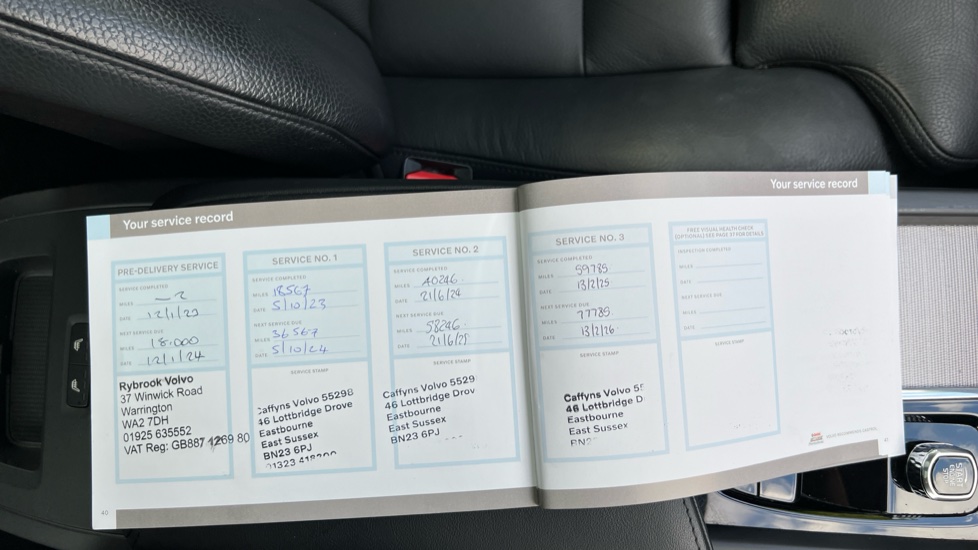 Your service record
PRE-DELIVERY SERVICE
SERVICE COMPLETED
MILES
DATE 12/1/23
NEXT SERVICE DUE
MILES 18.000
DATE 12/1/24
Rybrook Volvo
37 Winwick Road
Warrington
WA2 7DH
01925 635552
VAT Reg: GB887 1269 80
40
SERVICE NO. 1
SERVICE COMPLETED
MILES 18567
DATE 5/10/23
NEXT SERVICE DUE
MILES 36567
DATE 5/10/24
SERVICE STAMP
Caffyns Volvo 55298
46 Lottbridge Drove
Eastbourne
East Sussex
BN23 6PJ
01323
SERVICE NO. 2
SERVICE COMPLETED
MILES 40246
DATE 21/6/24
NEXT SERVICE DUE
MILES 58246
DATE 21/6/25
SERVICE STAMP
Caffyns Volvo 5529
46 Lottbridge Drov
Eastbourne
East Sussex
BN23 6PJ
Your service record
SERVICE NO. 3
SERVICE COMPLETED
MILES 59785
DATE 13/2/25
NEXT SERVICE DUE
MILES 77785
DATE 13/2/26
SERVICE STAMP
Caffyns Volvo 55
46 Lottbridge D
Eastbourne
East Sussex
FREE VISUAL HEALTH CHECK
(OPTIONAL) SEE PAGE 37 FOR DETAILS
INSPECTION COMPLETED
MILES
DATE
NEXT SERVICE DUE
MILES
DATE
SERVICE STAMP
START
ENGINE
STOP